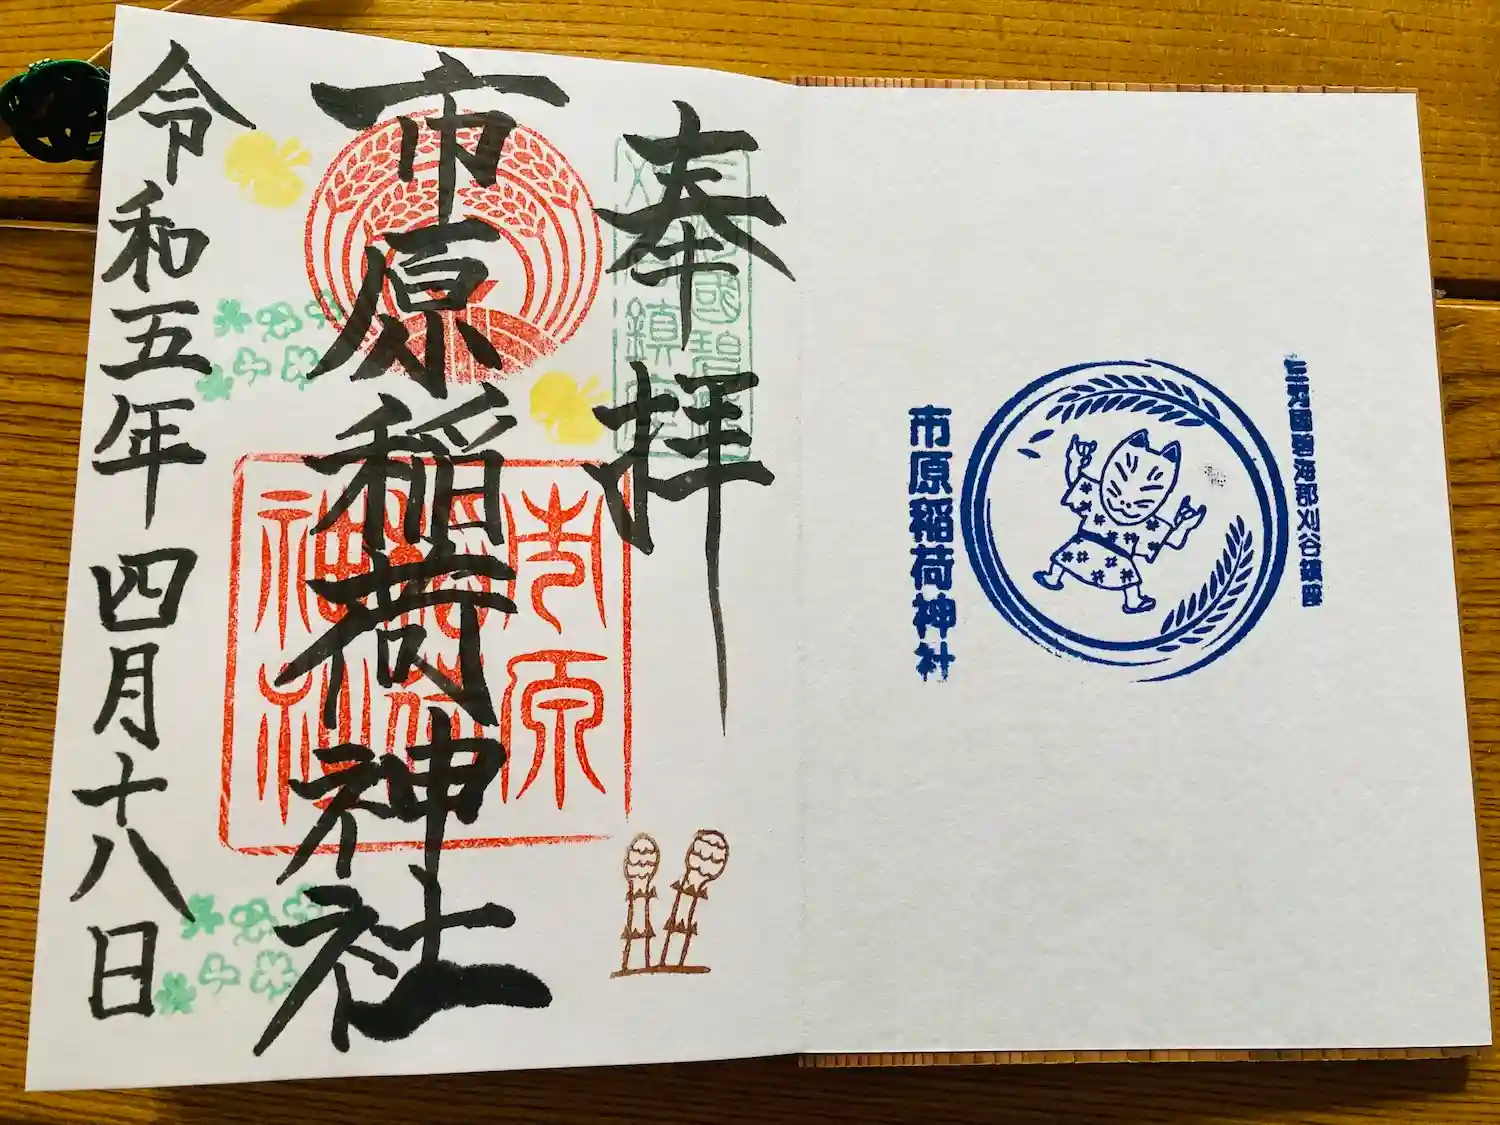 三河國碧海郡刈谷鎮座
市原稲荷神社
奉拝
三河國碧海
刈谷鎮座
市原稲荷神社
市原
稲荷
神社
令和五年四月十八日